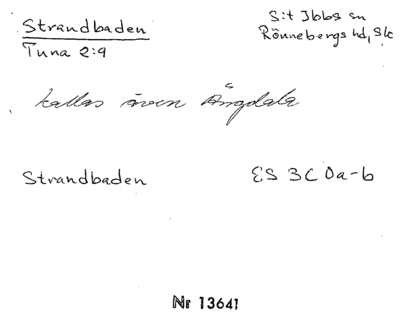 Strandbaden
Tuna 2:9
S:t Ibbs sn
Rönnebergs hd, Sk
kallas även Ängdala
Strandbaden
ES 3C 0a-b
Nr 13641